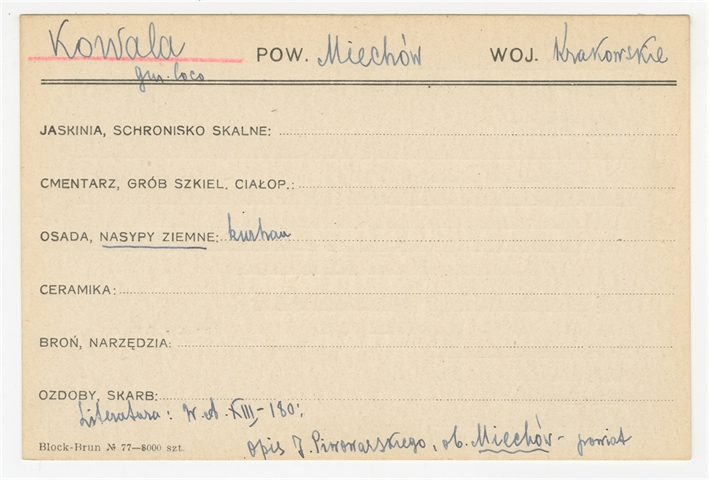 Kowala POW. Miechów WOJ. Krakowskie
gm. loco
JASKINIA, SCHRONISKO SKALNE:
CMENTARZ, GRÓB SZKIEL. CIAŁOP.:
OSADA, NASYPY ZIEMNE: kurhan
CERAMIKA:
BROŃ, NARZĘDZIA:
OZDOBY, SKARB:
Literatura: W.A. XIII-180;
opis J. Piwowarskiego, ob. Miechów - powiat
Block-Brun № 77—8000 szt.